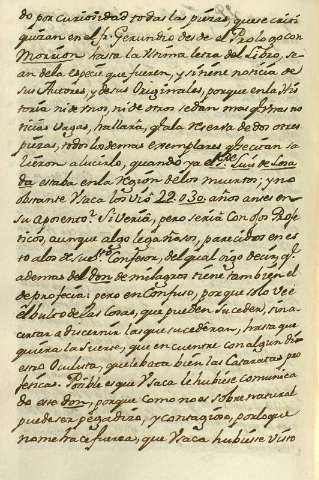 do por curiosidad todas las piezas, que se caici
quizan en el fr. Gerundio desde el Prologo con
Morrion hasta la ultima letra del Libro, se
an dela especie que fueren, y si tiene noticia de
sus Autores, y de sus Originales, porque en la His
toria ni de unos, ni de otros se dan mas q.e unas no
ticias vagas, hallarà, q.e a la reserva de dos o tres
piezas, todos los demas exemplares q.e se citan sa
lieron a lucirlo, quando ya el P.e Luis de Losa
da estaba en la Region de los muertos; y no
obstante Ysaca los viò 22. ò 30. años antes en
su Aposento. Si veria, pero seria con ojos Profe
ticos, aunque algo legañosos, parecidos en es
to a los de su Confesor, del qual oigo decir, q.e
ademas del don de milagros tiene tambien el
de profecia: pero en confuso, porque solo vè è
el bulto de las cosas, que pueden suceder, sin a
certar a discernir las que sucederan, hasta que
quiera la suerte, que encuentre con algun dies
tro Oculista, que le bata bien las Cataratas pro
feticas. Posible es que Ysaca le hubiese comunica
do ese don, porque como no es sobrenatural
puede ser pegadizo, y contagioso, por lo que
no me hace fuerza, que Ysaca hubiese visto